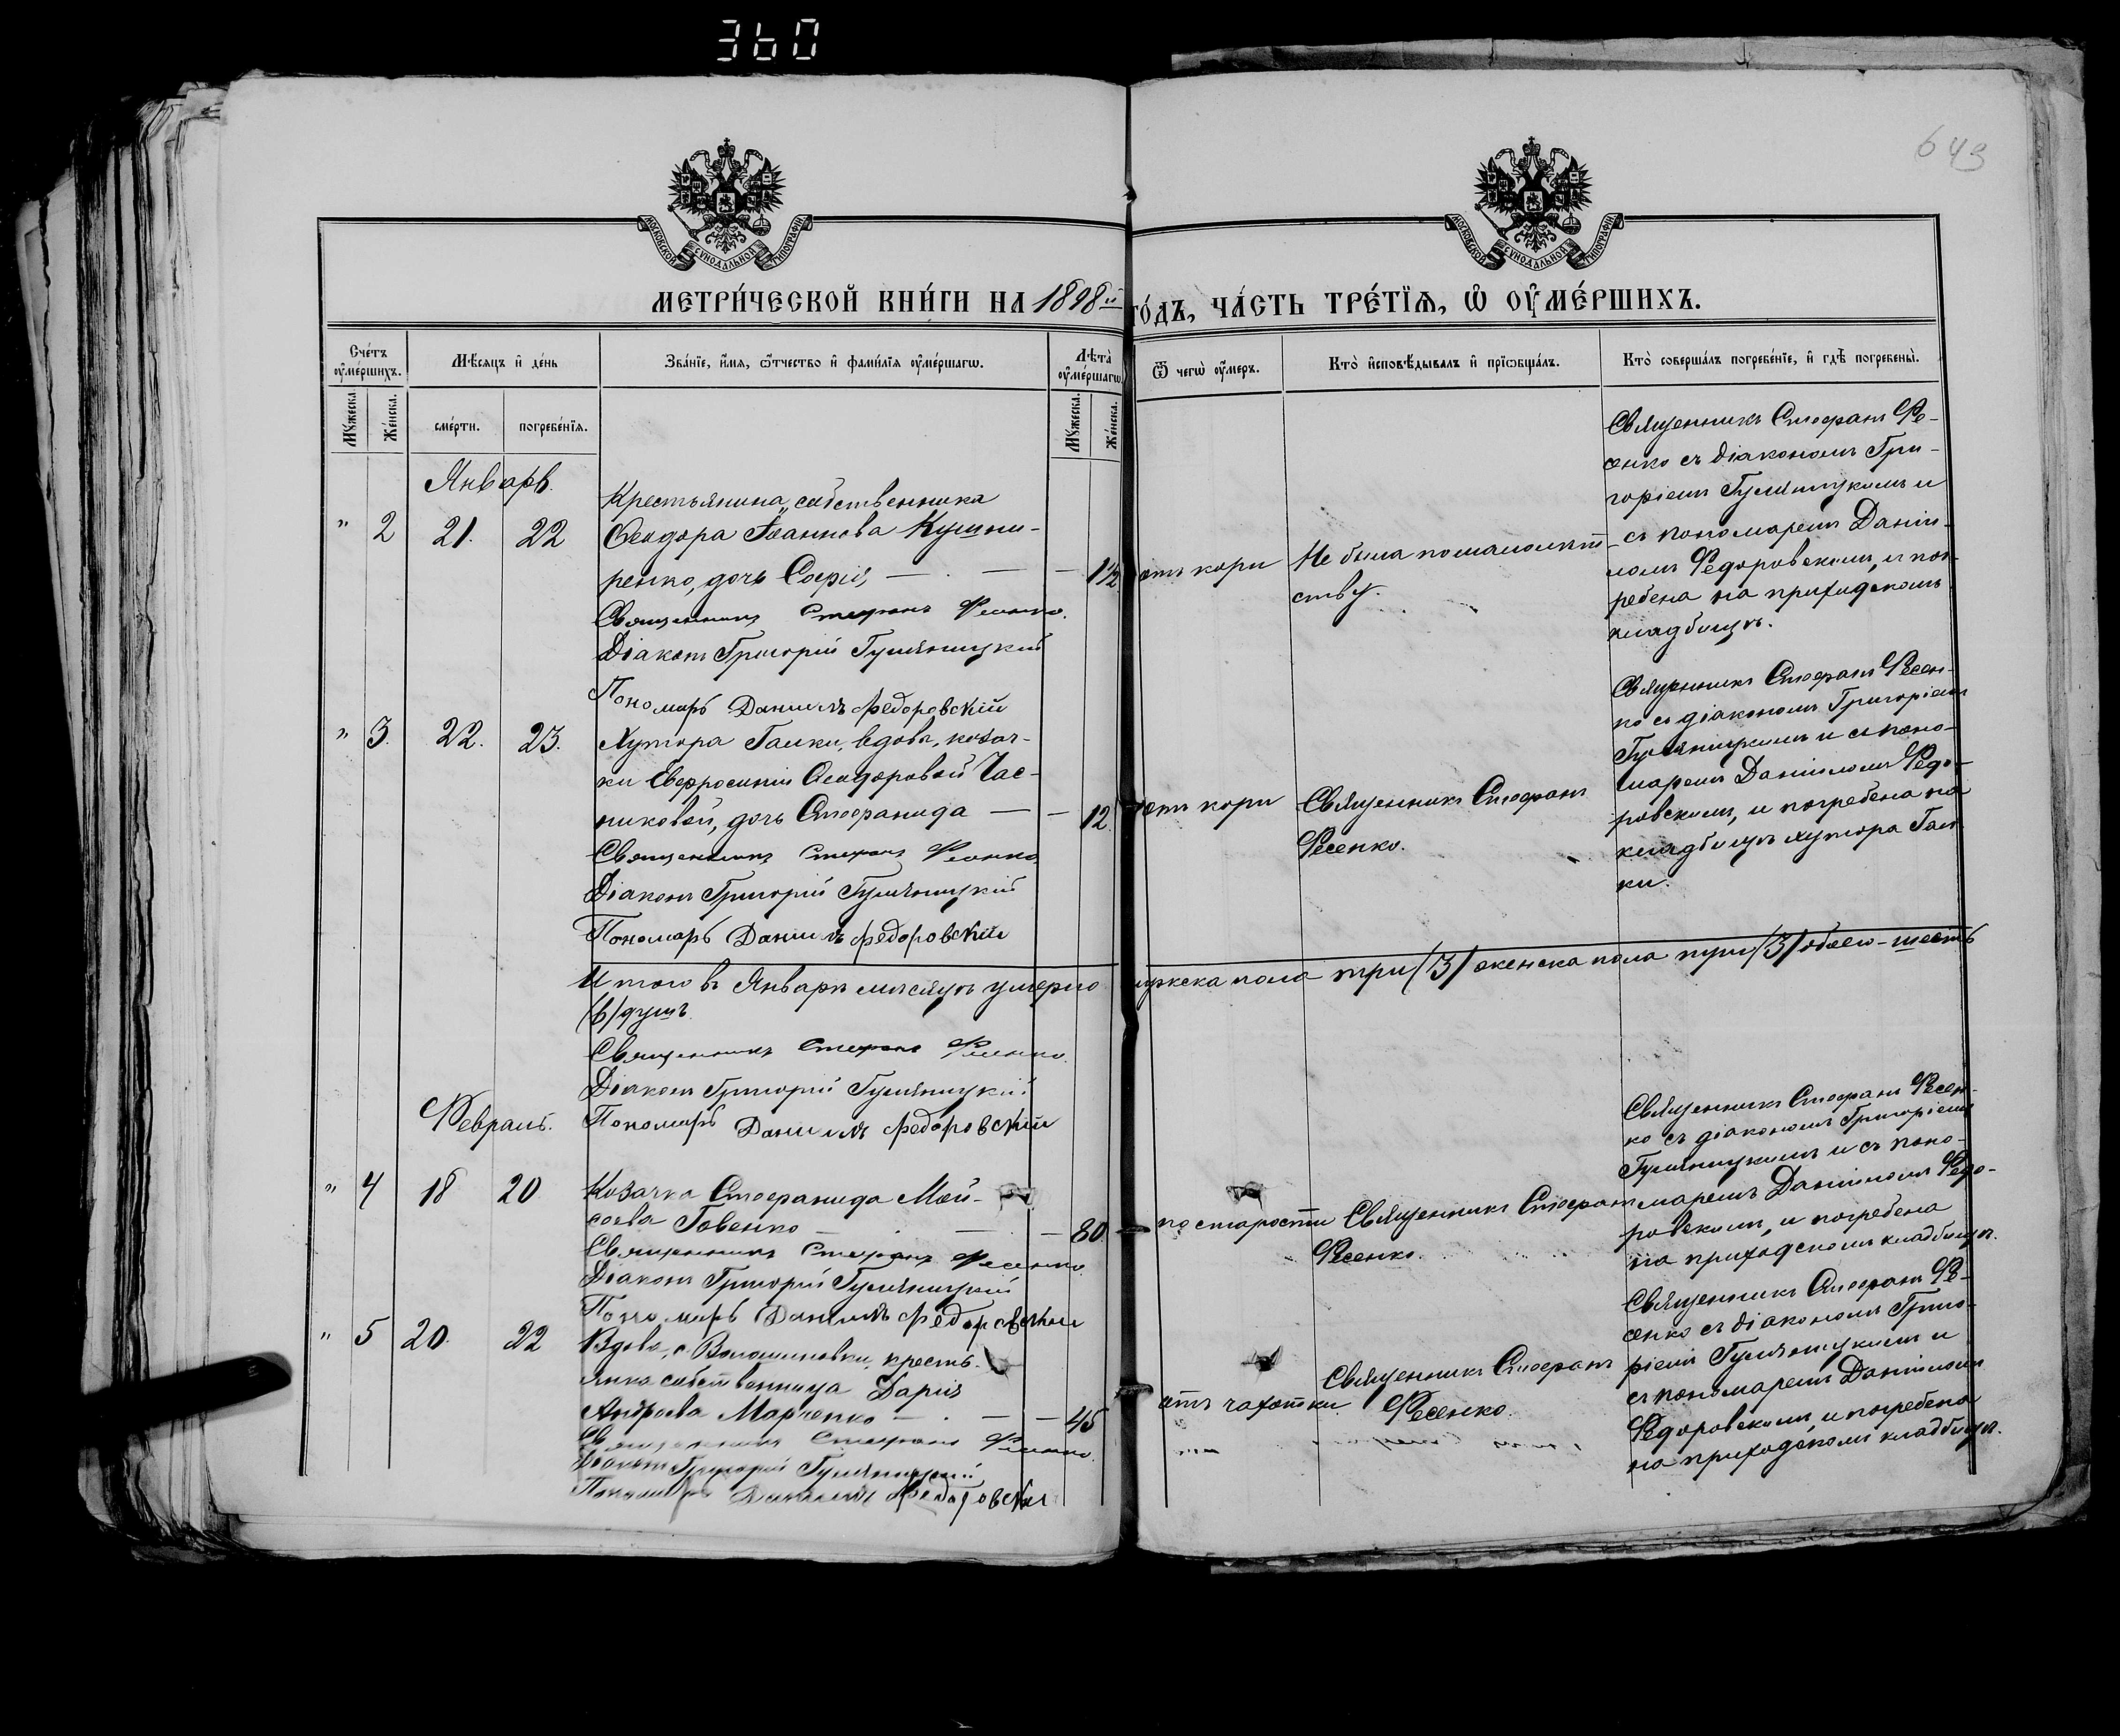 360
649
МОСКОВСКОЙ СѴНОДАЛЬНОЙ ТИПОГРАФІИ
МОСКОВСКОЙ СѴНОДАЛЬНОЙ ТИПОГРАФІИ
МЕТРИ́ЧЕСКОЙ КНИ́ГИ НА 1898й ГО́ДЪ, ЧА́СТЬ ТРЕ́ТІѦ, Ѡ ОУМЕ́РШИХЪ.
Сче́тъ оуме́ршихъ.
Мѣсяцъ и де́нь
Зва́ніе, и́мя, ѻ́тчество и фами́лїя оуме́ршагѡ.
Лѣта̀ оуме́ршагѡ
Ѿ чегѡ̀ оу́меръ.
Кто̀ исповѣ́дывалъ и прїѡбща́лъ.
Кто̀ соверша́лъ погребе́нїе, и гдѣ̀ погребены̀.
Мꙋ́жеска.
Же́нска.
сме́рти.
погребе́нїя.
Мꙋ́жеска.
Же́нска.
Январь.
" 2 21. 22
Крестьянина, собственника
Ѳеодора Іоаннова Кушни-
ренко, дочь Софія, — . — — 1½
Священникъ Стефанъ Фесенко.
Діаконъ Григорій Гумяницкій
Пономарь Даніилъ Федоровскій
отъ кори
Не была по малолѣт-
ству.
Священникъ Стефанъ Фе-
сенко съ діакономъ Гри-
горіемъ Гумяницкимъ и
съ пономаремъ Даніи-
ломъ Федоровскимъ, и пог-
ребена на приходскомъ
кладбищѣ.
" 3. 22. 23.
Хутора Галки, вдовы, козач-
ки Евфросиніи Ѳеодоровой Час-
никовой, дочь Стефанида — — 12.
Священникъ Стефанъ Фесенко
Діаконъ Григорій Гумяницкій
Пономарь Даніилъ Федоровскій
отъ кори
Священникъ Стефанъ
Фесенко.
Священникъ Стефанъ Фесен-
ко съ діакономъ Григоріемъ
Гумяницкимъ и съ поно-
маремъ Даніиломъ Федо-
ровскимъ, и погребена на
кладбищѣ хутора Гал-
ки.
Итого въ Январѣ мѣсяцѣ умерло мужеска пола три /3/ женска пола три /3/ обоего - шесть
/6/ душъ.
Священникъ Стефанъ Фесенко.
Діаконъ Григорій Гумяницкій
Пономарь Даніилъ Федоровскій
Февраль.
" 4 18 20
Козачка Стефанида Мой-
сеева Говенко — . — — 80.
Священникъ Стефанъ Фесенко.
Діаконъ Григорій Гумяницкій
Пономарь Даніилъ Федоровскій
по старости
Священникъ Стефанъ
Фесенко.
Священникъ Стефанъ Фесен-
ко съ діакономъ Григоріемъ
Гумяницкимъ и съ поно-
маремъ Даніиломъ Федо-
ровскимъ, и погребена
на приходскомъ кладбищѣ.
" 5 20. 22
Вдова, с. Волошиновки, кресть-
янка собственница Дарія
Андреева Марченко — . — — 45
Священникъ Стефанъ Фесенко.
Діаконъ Григорій Гумяницкій
Пономарь Даніилъ Федоровскій
отъ чахотки.
Священникъ Стефанъ
Фесенко.
Священникъ Стефанъ Фе-
сенко съ діакономъ Григо-
ріемъ Гумяницкимъ и
съ пономаремъ Даніиломъ
Федоровскимъ, и погребена
на приходскомъ кладбищѣ.